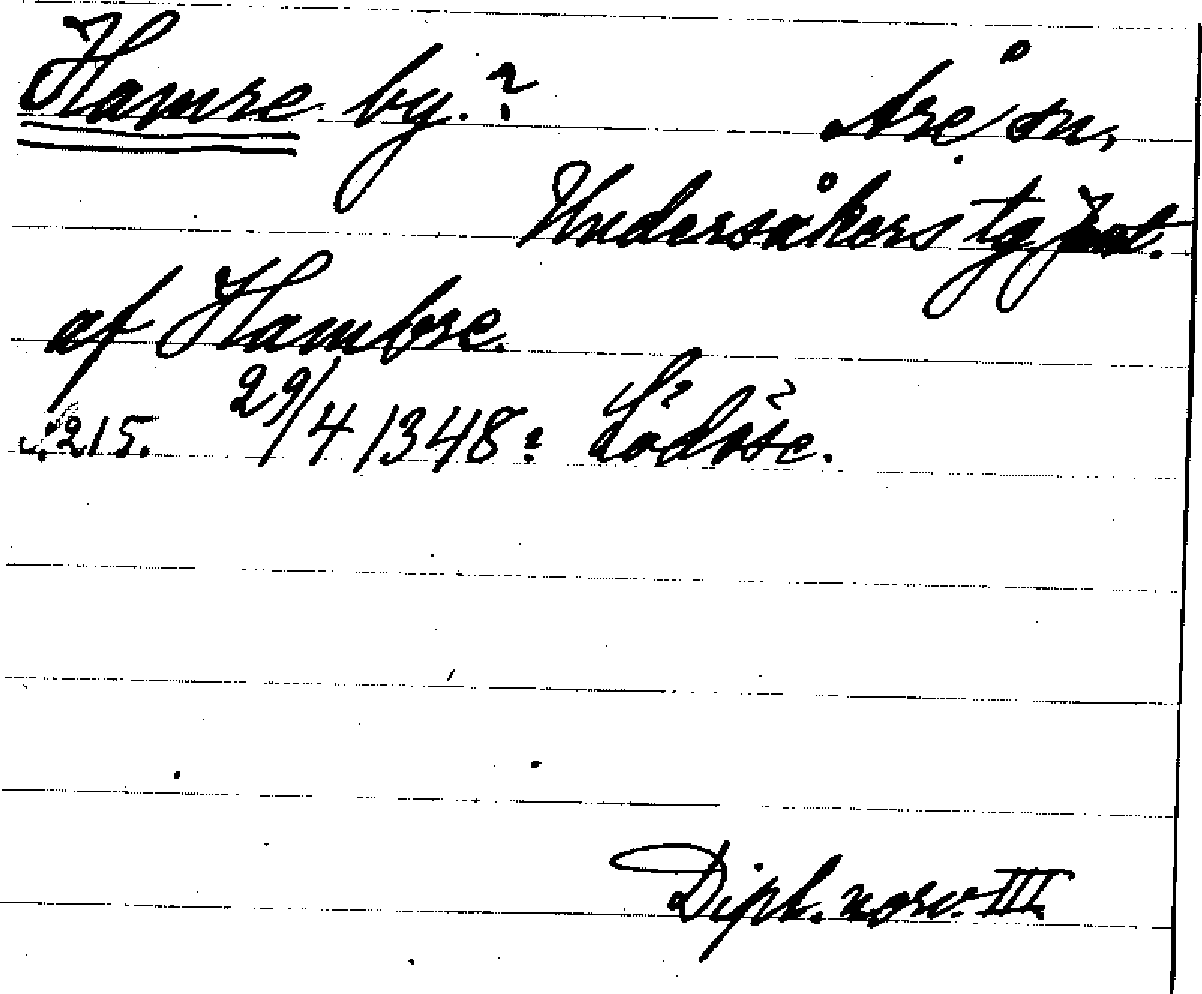 Hamre by.? Åre sn,
Undersåkers tg
af Hambre.
s. 215. 29/4 1348: Lödöse.
Dipl. norv. III.